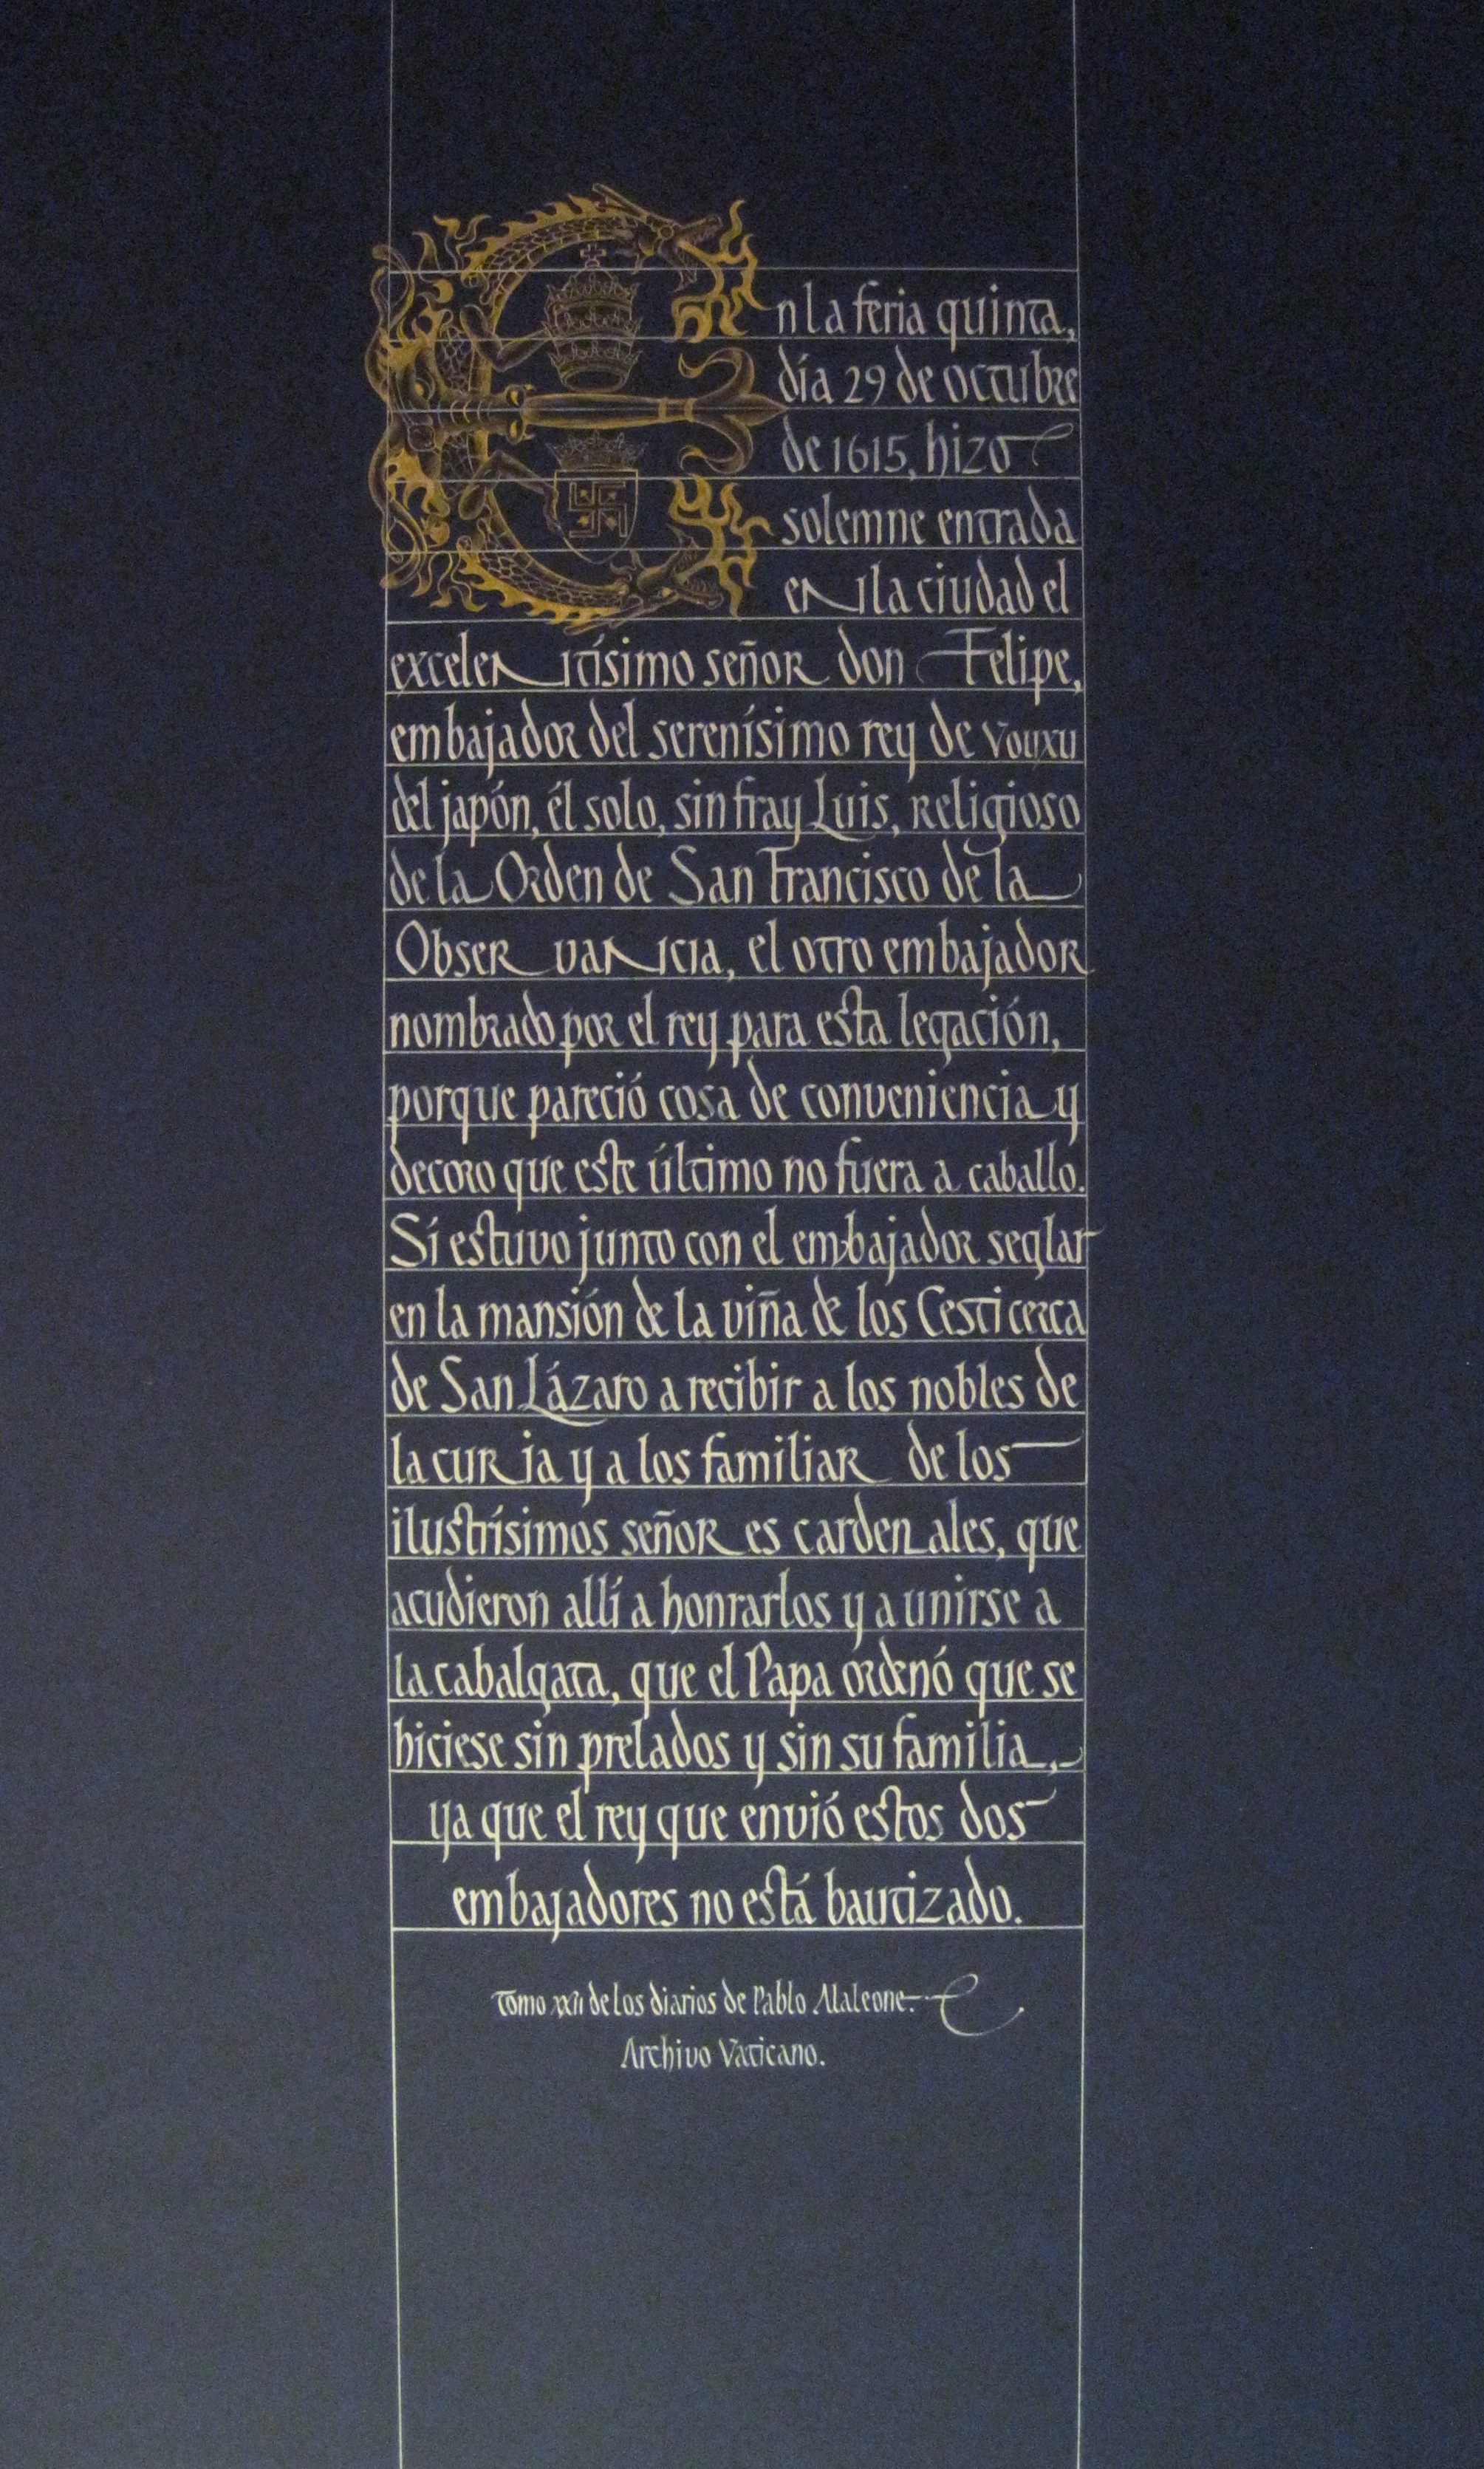 En la feria quinta,
día 29 de octubre
de 1615, hizo
solemne entrada
en la ciudad el
excelentísimo señor don Felipe,
embajador del serenísimo rey de Vouxu
del japón, él solo, sin fray Luis, religioso
de la Orden de San Francisco de la
Observancia, el otro embajador
nombrado por el rey para esta legación,
porque pareció cosa de conveniencia y
decoro que este último no fuera a caballo.
Sí estuvo junto con el embajador seglar
en la mansión de la viña de los Cesti cerca
de San Lázaro a recibir a los nobles de
la curia y a los familiar de los
ilustrísimos señores cardenales, que
acudieron allí a honrarlos y a unirse a
la cabalgata, que el Papa ordenó que se
hiciese sin prelados y sin su familia,
ya que el rey que envió estos dos
embajadores no está bautizado.
Tomo XXII de los diarios de Pablo Alaleone.
Archivo Vaticano.